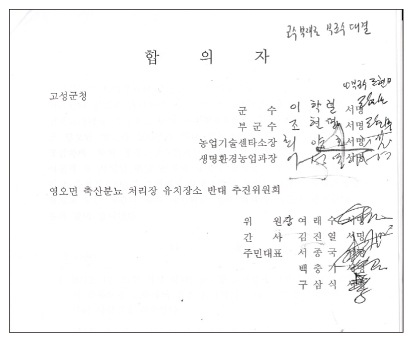 군수 부재로 부군수 대결
합 의 자
고성군청
군 수 이 학 렬 서명
부 군 수 조 현 명 서명
농업기술센타소장 최 서명
생명환경농업과장
영오면 축산분뇨 처리장 유치장소 반대 추진위원회
위 원 장 여 래 수
간 사 김 진 일 서명
주민대표 서 종 국
백 충 기
구 삼 식